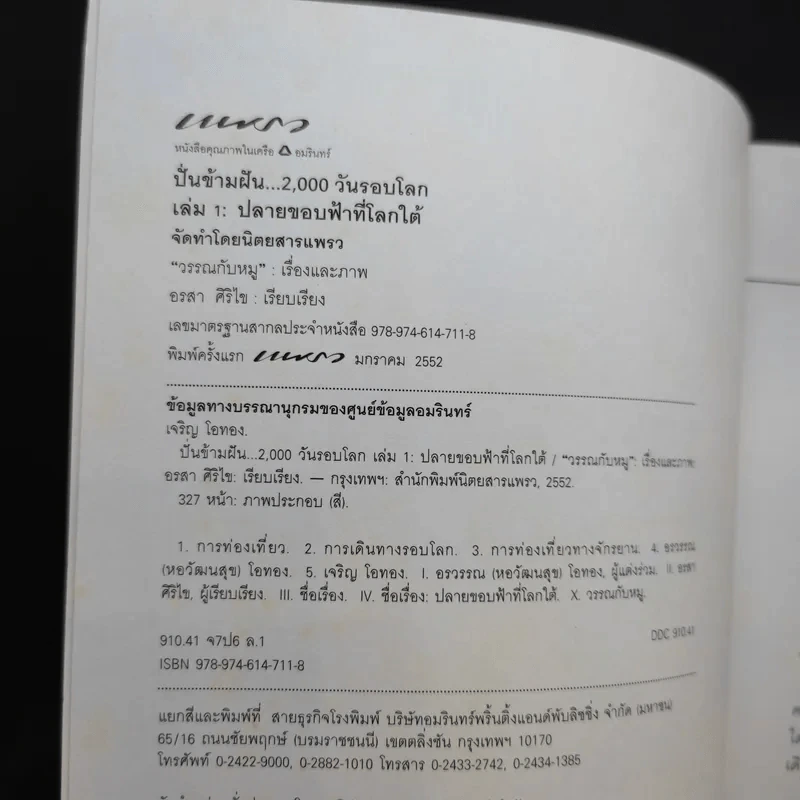 แพรว
หนังสือคุณภาพในเครือ อมรินทร์
ปั่นข้ามฝัน...2,000 วันรอบโลก
เล่ม 1: ปลายขอบฟ้าที่โลกใต้
จัดทำโดยนิตยสารแพรว
“วรรณกับหมู” : เรื่องและภาพ
อรสา ศิริไข : เรียบเรียง
เลขมาตรฐานสากลประจำหนังสือ 978-974-614-711-8
พิมพ์ครั้งแรก แพรว มกราคม 2552
ข้อมูลทางบรรณานุกรมของศูนย์ข้อมูลอมรินทร์
เจริญ โอทอง.
ปั่นข้ามฝัน...2,000 วันรอบโลก เล่ม 1: ปลายขอบฟ้าที่โลกใต้ / “วรรณกับหมู”: เรื่องและภาพ
อรสา ศิริไข: เรียบเรียง. — กรุงเทพฯ: สำนักพิมพ์นิตยสารแพรว, 2552.
327 หน้า: ภาพประกอบ (สี).
1. การท่องเที่ยว. 2. การเดินทางรอบโลก. 3. การท่องเที่ยวทางจักรยาน. 4. อรวรรณ
(หอวัฒนสุข) โอทอง. 5. เจริญ โอทอง. I. อรวรรณ (หอวัฒนสุข) โอทอง, ผู้แต่งร่วม. II. อรสา
ศิริไข, ผู้เรียบเรียง. III. ชื่อเรื่อง. IV. ชื่อเรื่อง: ปลายขอบฟ้าที่โลกใต้. X. วรรณกับหมู.
910.41 จ7ป6 ล.1 DDC 910.41
ISBN 978-974-614-711-8
แยกสีและพิมพ์ที่ สายธุรกิจโรงพิมพ์ บริษัทอมรินทร์พริ้นติ้งแอนด์พับลิชชิ่ง จำกัด (มหาชน)
65/16 ถนนชัยพฤกษ์ (บรมราชชนนี) เขตตลิ่งชัน กรุงเทพฯ 10170
โทรศัพท์ 0-2422-9000, 0-2882-1010 โทรสาร 0-2433-2742, 0-2434-1385